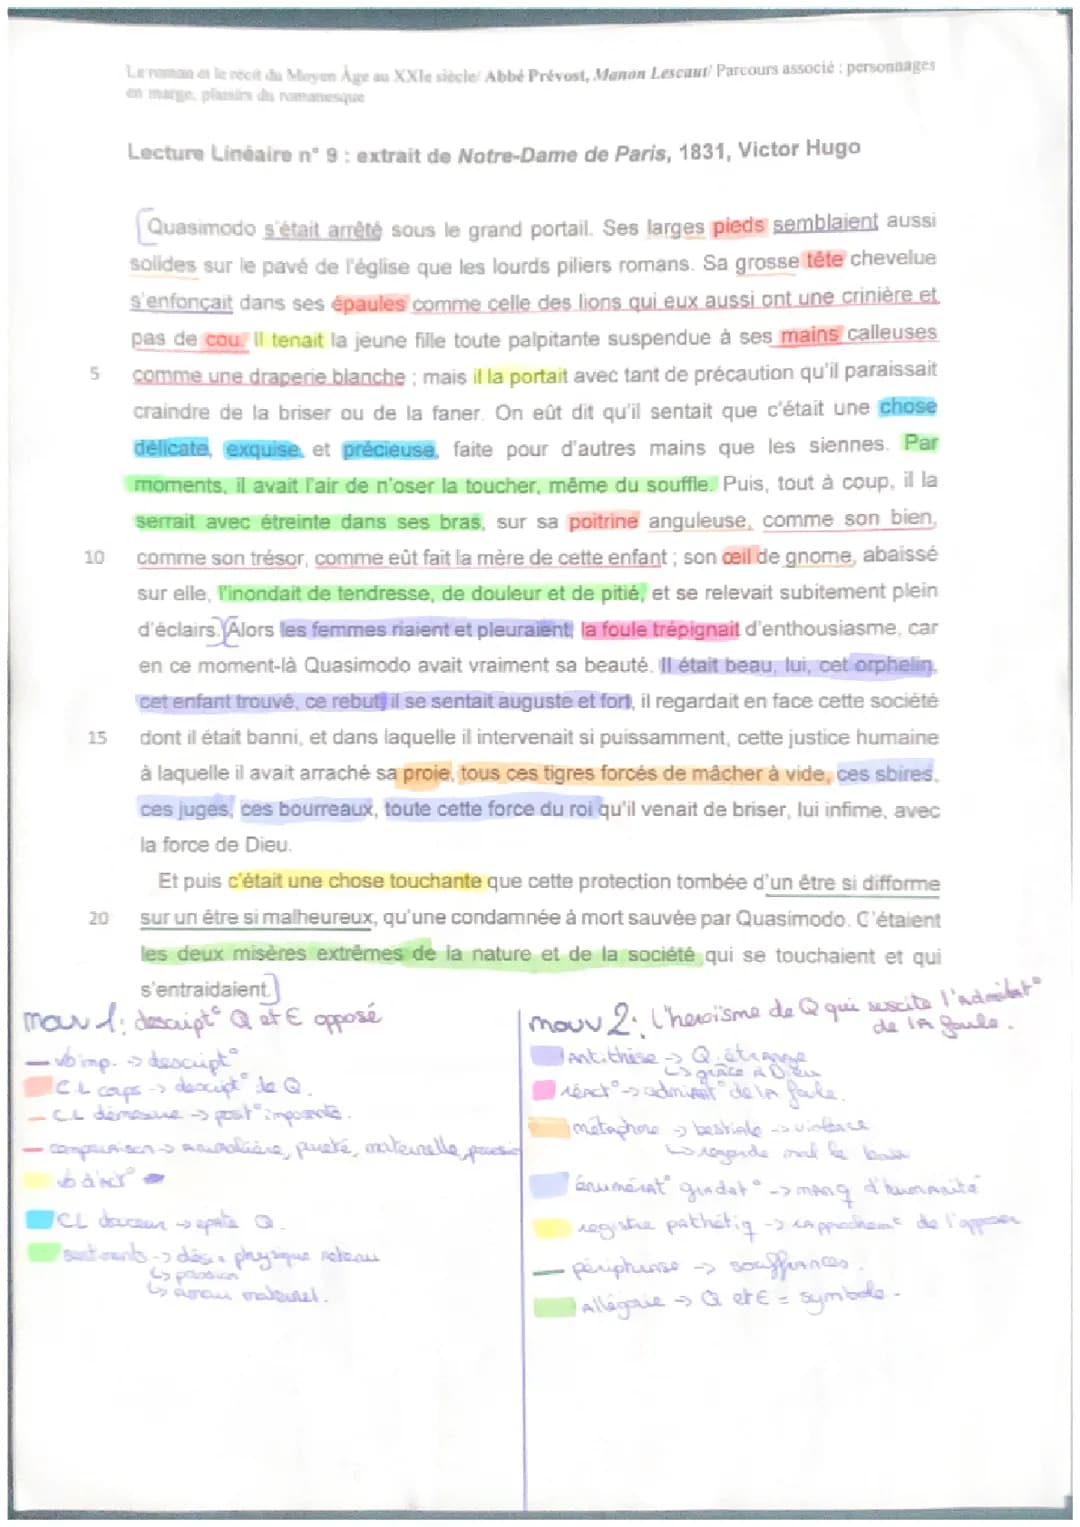 Le roman et le récit du Moyen Âge au XXIe siècle/ Abbé Prévost, Manon Lescaut/ Parcours associé : personnages
en marge, plaisirs du romanesque
Lecture Linéaire n° 9 : extrait de Notre-Dame de Paris, 1831, Victor Hugo
[Quasimodo s'était arrêté sous le grand portail. Ses larges pieds semblaient aussi
solides sur le pavé de l'église que les lourds piliers romans. Sa grosse tête chevelue
s'enfonçait dans ses épaules comme celle des lions qui eux aussi ont une crinière et
pas de cou. Il tenait la jeune fille toute palpitante suspendue à ses mains calleuses
5 comme une draperie blanche ; mais il la portait avec tant de précaution qu'il paraissait
craindre de la briser ou de la faner. On eût dit qu'il sentait que c'était une chose
délicate, exquise et précieuse, faite pour d'autres mains que les siennes. Par
moments, il avait l'air de n'oser la toucher, même du souffle. Puis, tout à coup, il la
serrait avec étreinte dans ses bras, sur sa poitrine anguleuse, comme son bien,
10 comme son trésor, comme eût fait la mère de cette enfant ; son œil de gnome, abaissé
sur elle, l'inondait de tendresse, de douleur et de pitié, et se relevait subitement plein
d'éclairs.][Alors les femmes riaient et pleuraient, la foule trépignait d'enthousiasme, car
en ce moment-là Quasimodo avait vraiment sa beauté. Il était beau, lui, cet orphelin,
cet enfant trouvé, ce rebut, il se sentait auguste et fort, il regardait en face cette société
15 dont il était banni, et dans laquelle il intervenait si puissamment, cette justice humaine
à laquelle il avait arraché sa proie, tous ces tigres forcés de mâcher à vide, ces sbires,
ces juges, ces bourreaux, toute cette force du roi qu'il venait de briser, lui infime, avec
la force de Dieu.
Et puis c'était une chose touchante que cette protection tombée d'un être si difforme
20 sur un être si malheureux, qu'une condamnée à mort sauvée par Quasimodo. C'étaient
les deux misères extrêmes de la nature et de la société qui se touchaient et qui
s'entraidaient.]
mouv 1: descript° Q et E opposé
vb imp. -> descript°
CL corps -> descript° de Q.
CL démesure -> post° imposante.
comparaison -> pureté, maternelle,
vb d'act°
CL douceur -> Q.
sentiments -> désir physique retenu
↳ passion
↳ amour maternel.
mouv 2: l'héroïsme de Q qui suscite l'admirat°
de la foule.
Antithèse -> Q. étrange
↳ grâce à Dieu
réact° -> admirat° de la foule.
métaphore -> bestiale -> violence
↳ regarde mal le
énumérat° gradat° -> manq d'humanité
registre pathétiq -> rapprochemt de l'opposé
périphrase -> souffrances.
Allégorie -> Q et E = symbole.